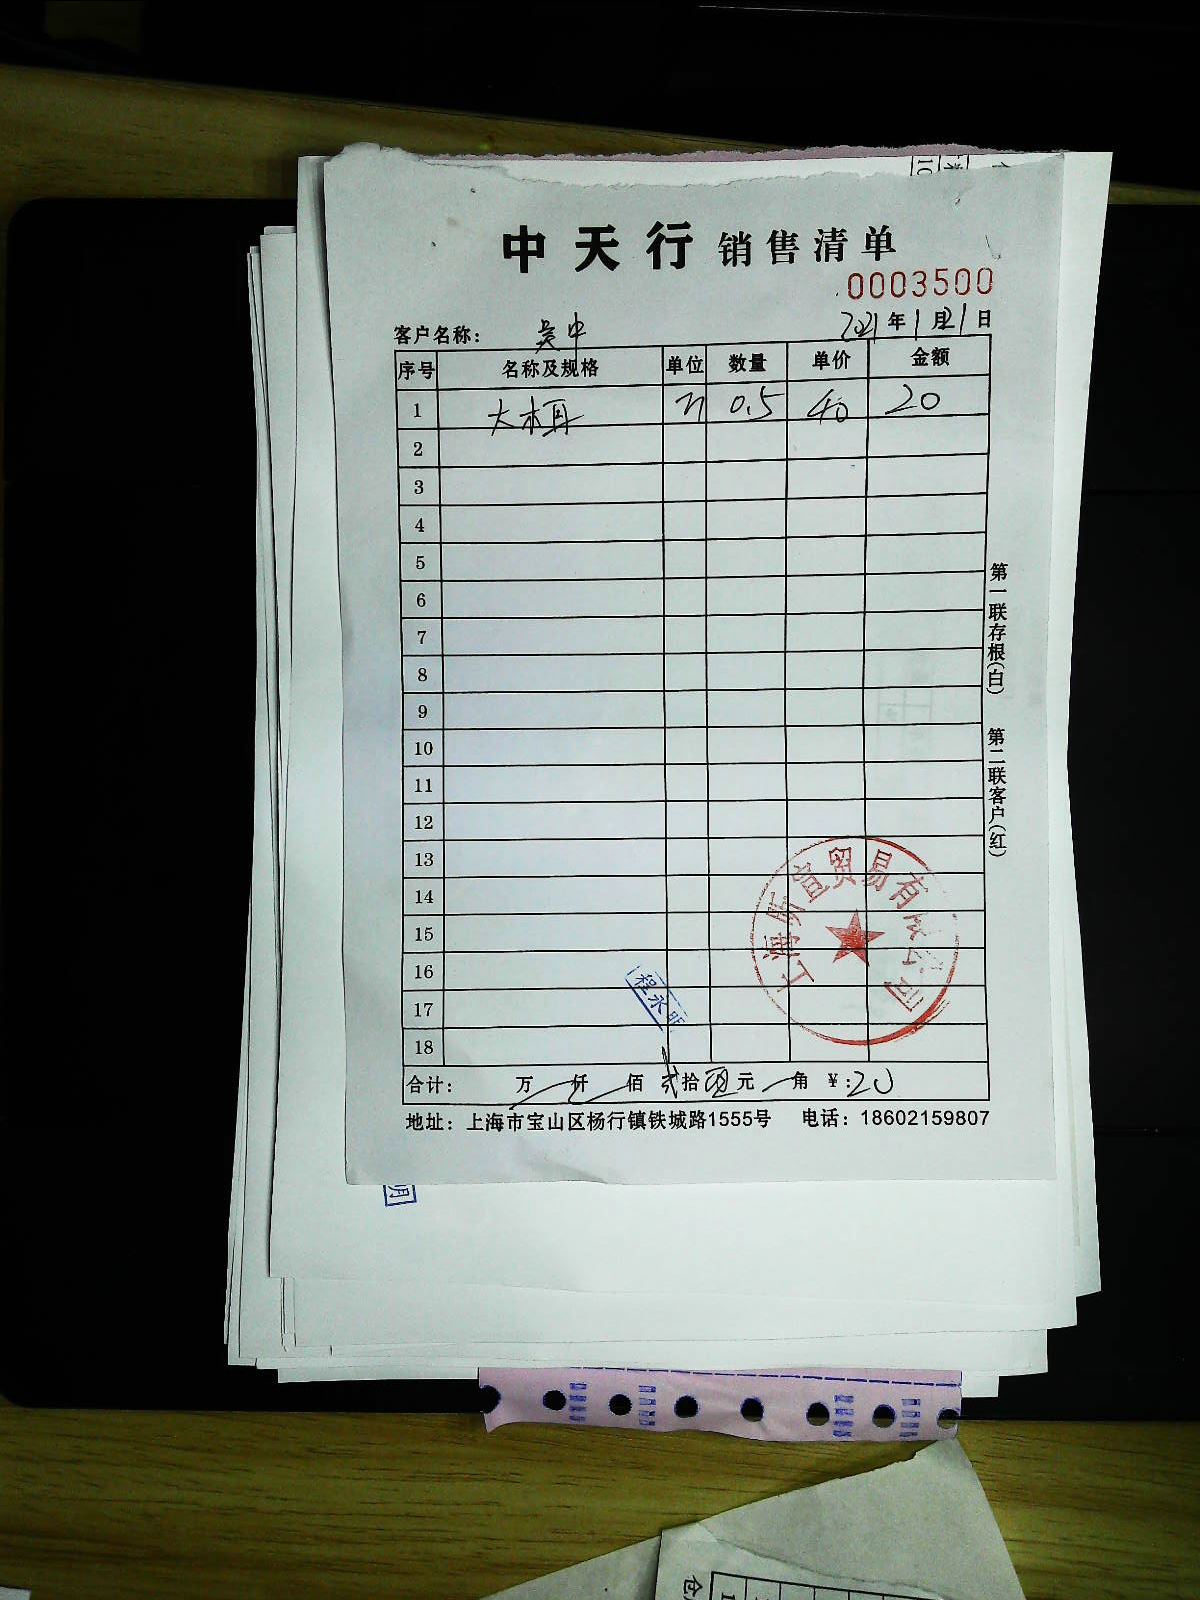 中天行 销售清单
0003500
客户名称： 吴中 2021年1月21日
序号 名称及规格 单位 数量 单价 金额
1 大木耳 0.5 40 20
2
3
4
5
6
7
8
9
10
11
12
13
14
15
16
17
18
合计： 万 仟 佰 贰拾 元 角 ￥:20
地址：上海市宝山区杨行镇铁城路1555号 电话：18602159807
第一联存根(白) 第二联客户(红)
上海昕宜贸易有限公司
程永明